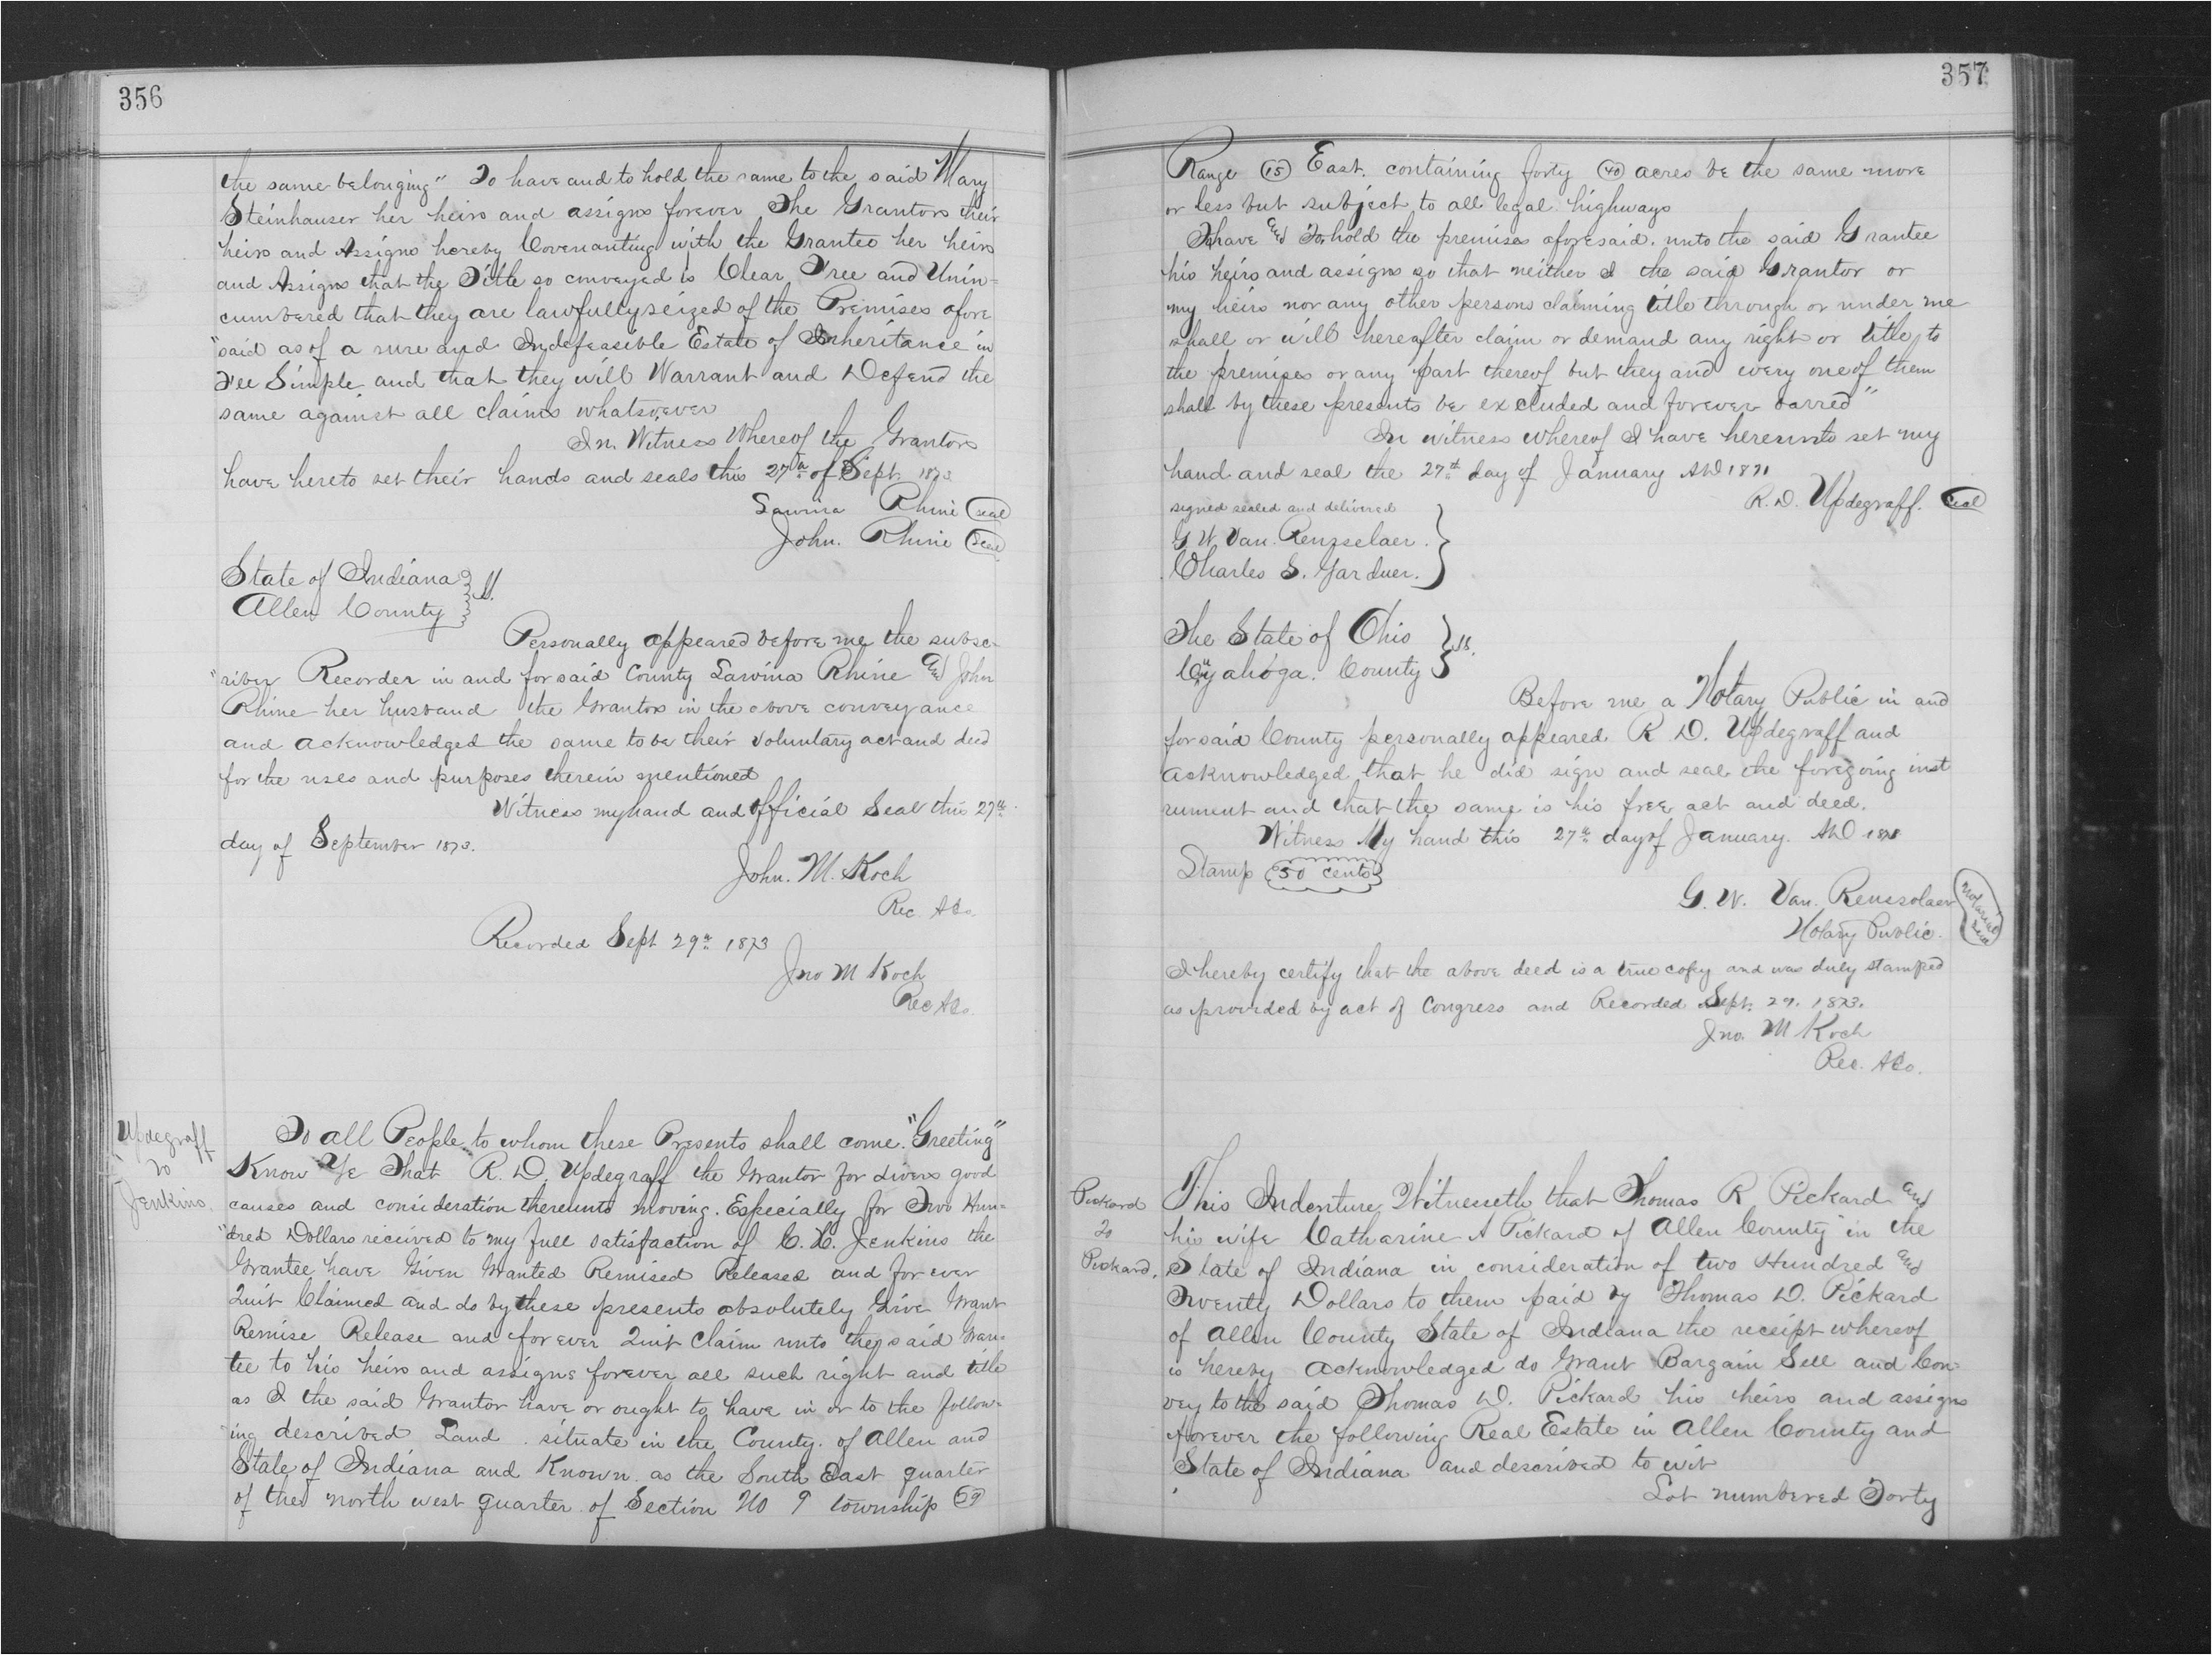 356
the same belonging" To have and to hold the same to the said Mary
Steinhauser her heirs and assigns forever The Grantors their
heirs and Assigns hereby Covenanting with the Grantee her heirs
and Assigns that the Title so conveyed is Clear Free and Unin=
cumbered that they are lawfully seized of the Premises afore
"said as of a sure and Indefeasible Estate of Inheritance in
Fee Simple and that they will Warrant and Defend the
same against all claims whatsoever
In Witness Whereof the Grantors
have hereto set their hands and seals this 27th of Sept 1873
Lavina Rhine (seal)
John. Rhine (seal)
State of Indiana } SS.
Allen County
Personally appeared before me the subsc-
"riber Recorder in and for said County Lavina Rhine and John
Rhine her husband the Grantors in the above conveyance
and acknowledged the same to be their voluntary act and deed
for the uses and purposes therein mentioned
Witness my hand and official Seal this 27th
day of September 1873.
John. M. Koch
Rec. A Co.
Recorded Sept 29th 1873
Jno M Koch
Rec A Co.
Updegraff
to
Jenkins.
To all People to whom these Presents shall come. "Greeting"
Know Ye That R. D. Updegraff the Grantor for divers good
causes and consideration thereunto moving. Especially for Two Hun=
"dred Dollars received to my full satisfaction of C. H. Jenkins the
Grantee have Given Granted Remised Released and forever
Quit Claimed and do by these presents absolutely Give Grant
Remise Release and forever Quit Claim unto the said Gran=
tee to his heirs and assigns forever all such right and title
as I the said Grantor have or ought to have in or to the follow=
"ing described Land. situate in the County. of Allen and
State of Indiana and Known as the South East quarter
of the north west quarter of Section No 9 township
357
Range (15) East. containing forty (40) acres be the same more
or less but subject to all legal highways
To have and To hold the premises aforesaid. unto the said Grantee
his heirs and assigns so that neither I the said Grantor or
my heirs nor any other persons claiming title through or under me
shall or will hereafter claim or demand any right or title to
the premises or any part thereof but they and every one of them
shall by these presents be excluded and forever barred"
In witness whereof I have hereunto set my
hand and seal the 27th day of January AD 1871
R. D. Updegraff. (seal)
signed sealed and delivered
G W. Van. Rensselaer.
Charles S. Gardner.
The State of Ohio } SS.
Cuyahoga. County
Before me a Notary Public in and
for said County personally appeared R. D. Updegraff and
acknowledged that he did sign and seal the foregoing inst
rument and that the same is his free act and deed.
Witness My hand this 27th day of January. AD
Stamp (50 cents)
G. W. Van. Rensselaer (Notarial Seal)
Notary Public.
I hereby certify that the above deed is a true copy and was duly stamped
as provided by act of Congress and Recorded Sept. 29. 1873.
Jno. M Koch
Rec. A Co.
Pickard
to
Pickard.
This Indenture Witnesseth that Thomas R Pickard and
his wife Catharine A Pickard of Allen County in the
State of Indiana in consideration of two Hundred and
Twenty Dollars to them paid by Thomas D. Pickard
of Allen County State of Indiana the receipt whereof
is hereby acknowledged do Grant Bargain Sell and Con=
vey to the said Thomas D. Pickard his heirs and assigns
forever the following Real Estate in Allen County and
State of Indiana and described to wit
Lot numbered Forty